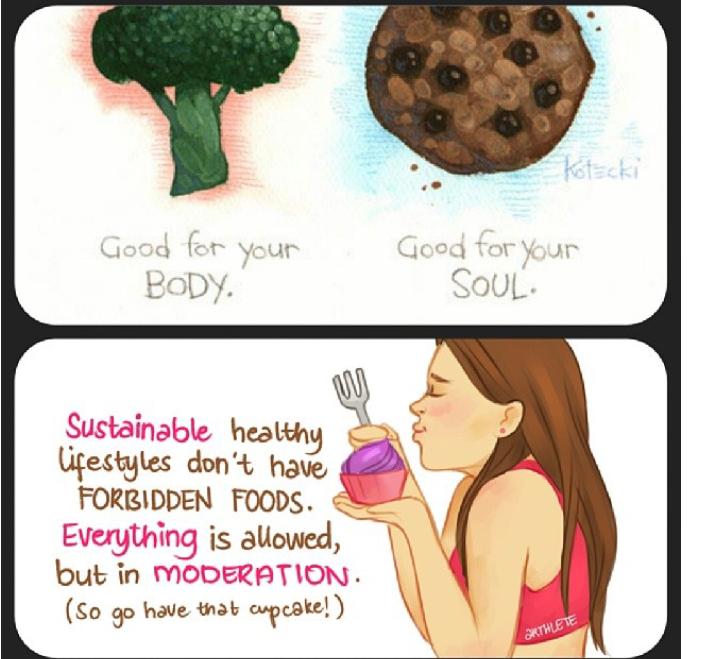 Kotecki
Good for your
BODY.
Good for your
SOUL.
Sustainable healthy
lifestyles don't have
FORBIDDEN FOODS.
Everything is allowed,
but in MODERATION.
(So go have that cupcake!)
ARTHLETE